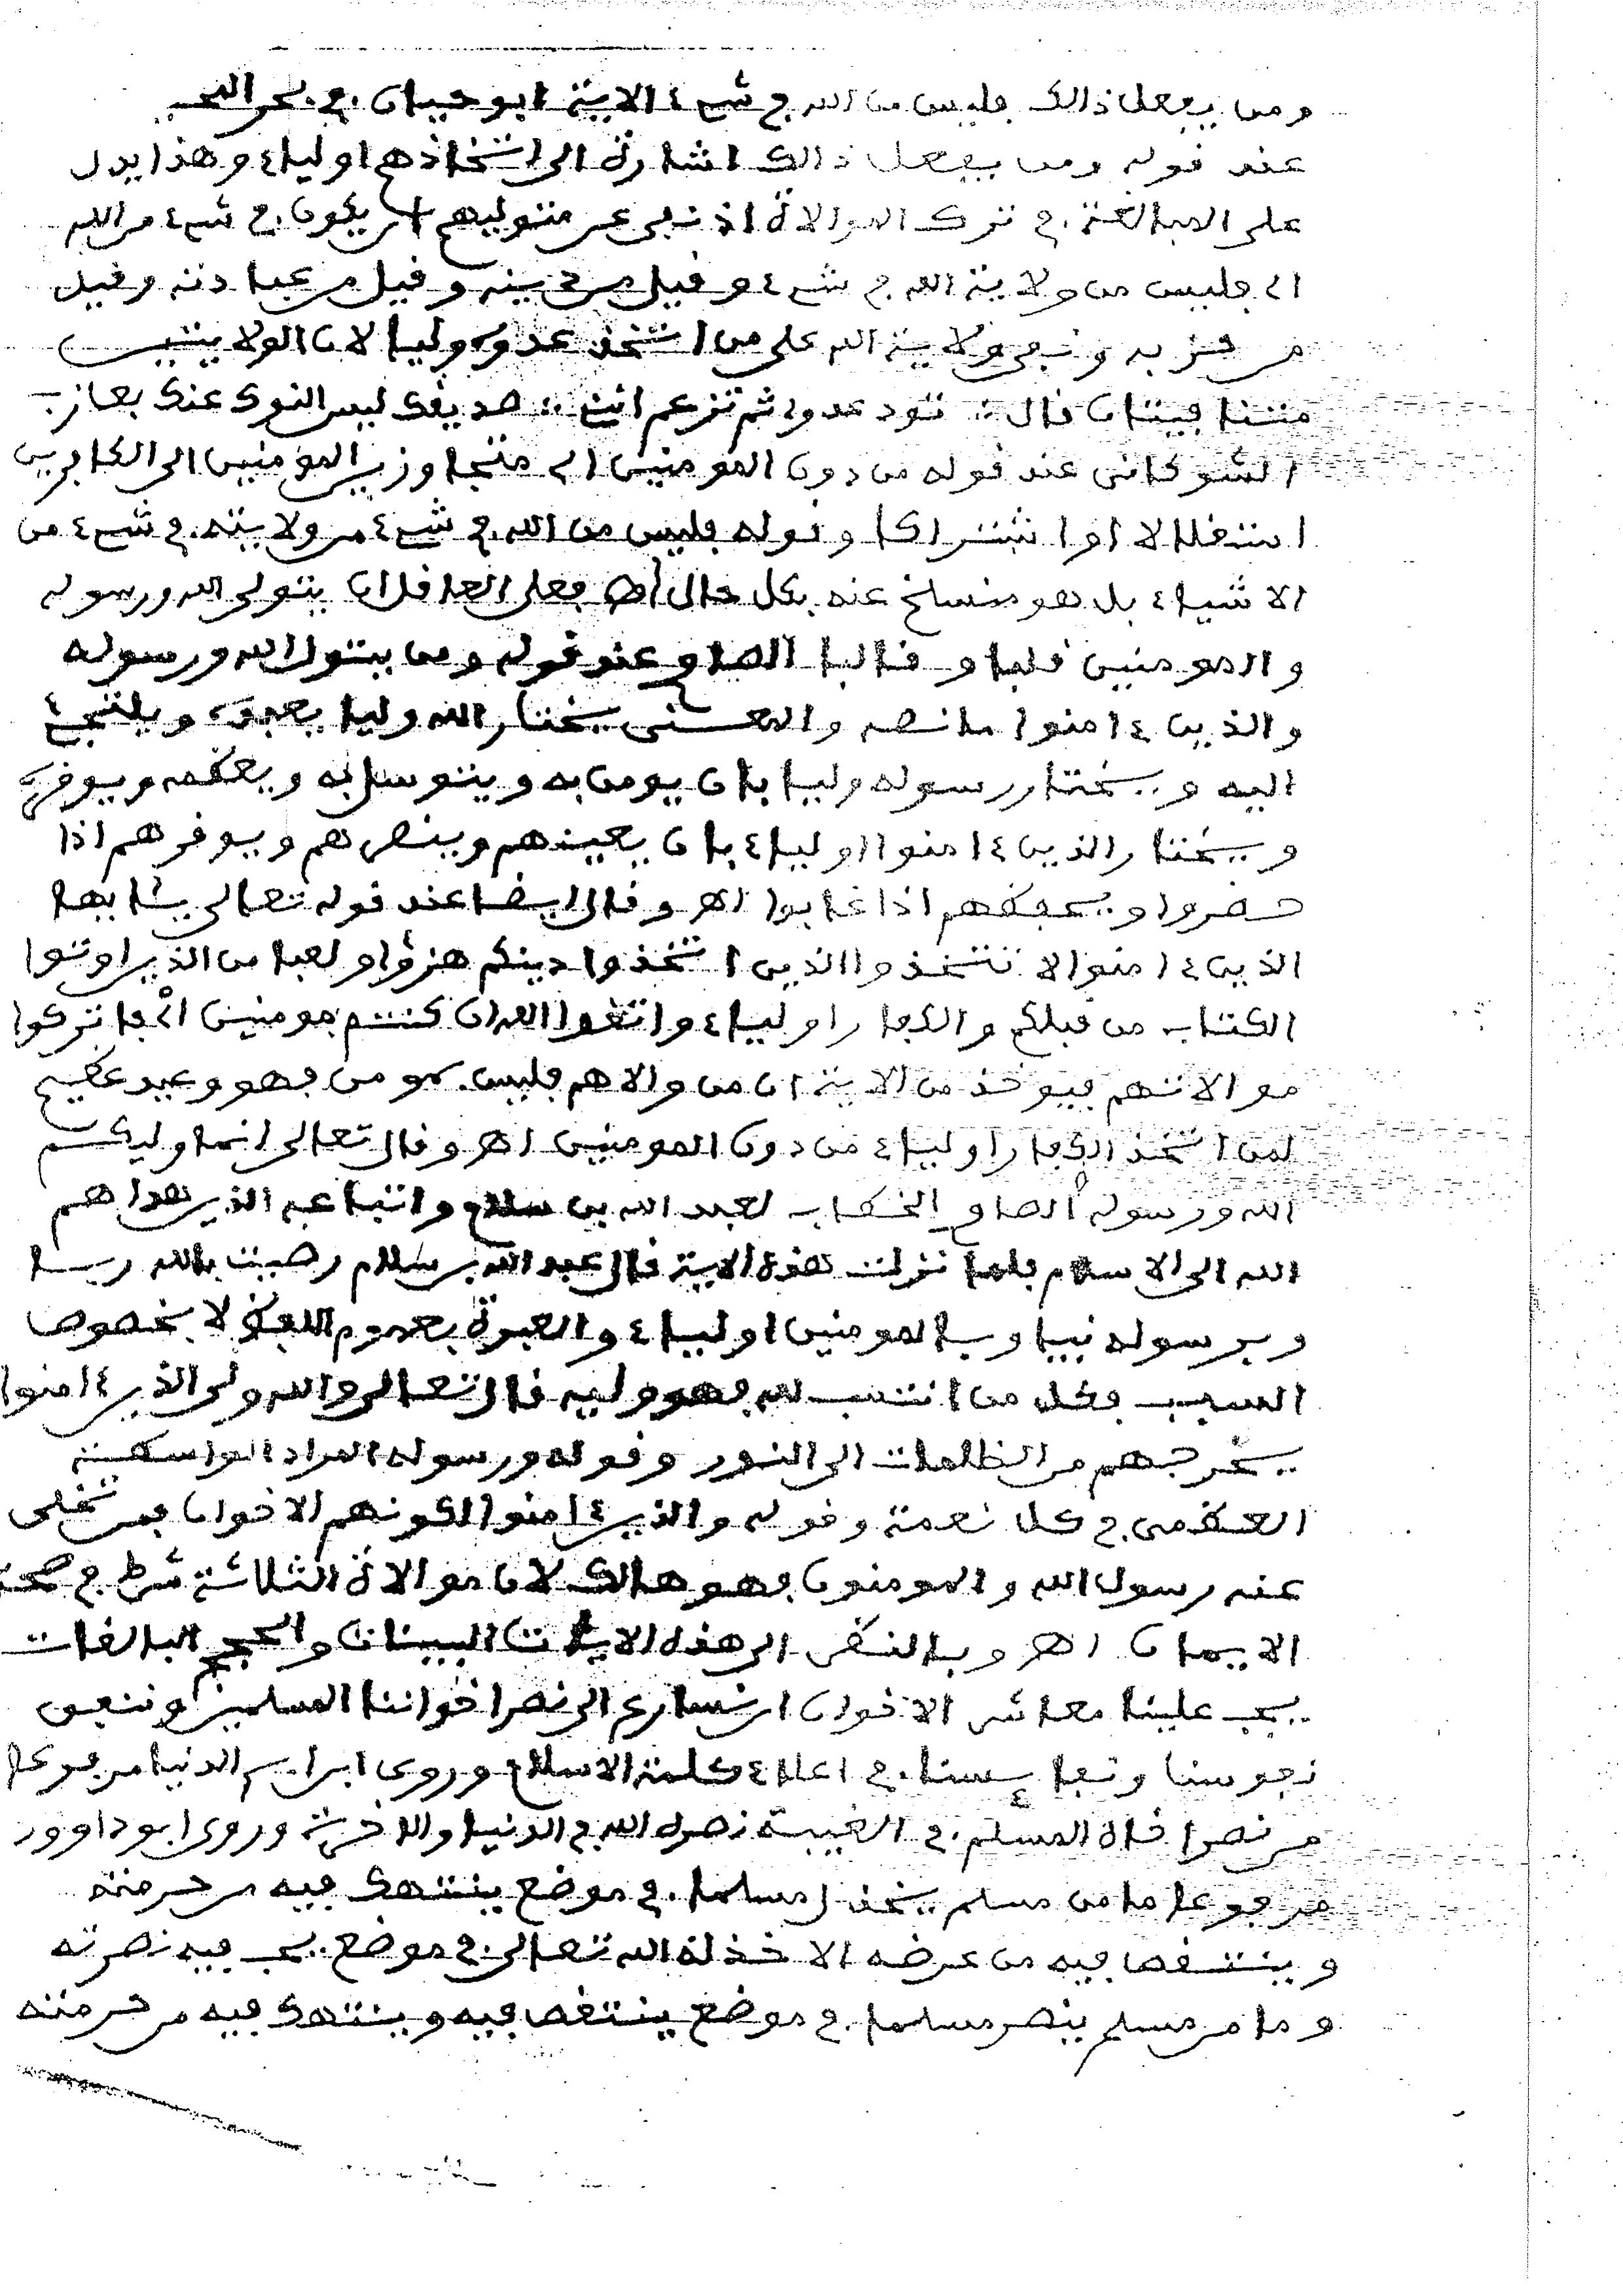 ومن يفعل ذالك فليس من الله في شيء الاية ابو حيان في بحر البحر
عند قوله ومن يفعل ذالك اشارة الى اتخاذهم اولياء وهذا يدل
على المبالغة في ترك الموالاة اذ نفى عن متوليهم ان يكون في شيء من الله
اي فليس من ولاية الله في شيء وقيل من دينه وقيل من عبادته وقيل
من حزبه ونفى ولاية الله على من اتخذ عدوه وليا لان الولايتين
متنافيتان قال ∴ تود عدوي ثم تزعم انني ∴ صديقك ليس النوك عنك بعازب
الشوكاني عند قوله من دون المومنين اي متجاوزين المومنين الى الكافرين
استقلالا او اشتراكا وقوله فليس من الله في شيء من ولايته في شيء من
الاشياء بل هو منسلخ عنه بكل حال اهـ فعلى العاقل ان يتولى الله ورسوله
والمومنين قلبا وقالبا الصاوي عند قوله ومن يتول الله ورسوله
والذين ءامنوا مانصه والمعنى يختار الله وليا يعبده ويلتجئ
اليه ويختار رسوله وليا بان يومن به ويتوسل به ويعظمه ويوقره
ويختار الذين ءامنوا اولياء بان يعينهم وينصرهم ويوقرهم اذا
حضروا ويحفظهم اذا غابوا اهـ وقال ايضا عند قوله تعالى يايها
الذين ءامنوا لا تتخذوا الذين اتخذوا دينكم هزؤا ولعبا من الذين اوتوا
الكتاب من قبلكم والكفار اولياء واتقوا الله ان كنتم مومنين اي فاتركوا
موالاتهم فيوخذ من الاية ان من والاهم فليس بمومن فهو وعيد عظيم
لمن اتخذ الكفار اولياء من دون المومنين اهـ وقال تعالى انما وليكم
الله ورسوله الصاوي الخطاب لعبد الله بن سلام واتباعه الذين هداهم
الله الى الاسلام فلما نزلت هذه الاية قال عبد الله بن سلام رضيت بالله ربا
وبرسوله نبيا وبالمومنين اولياء والعبرة بعموم اللفظ لا بخصوص
السبب فكل من انتسب لله فهو وليه قال تعالى والله ولي الذين ءامنوا
يخرجهم من الظلمات الى النور وقوله ورسوله المراد الواسطة
العظمى في كل نعمة وقوله والذين ءامنوا لكونهم الاخوان فمن تخلى
عنه رسول الله والمومنون فهو هالك لان موالاة الثلاثة شرط في صحة
الايمان اهـ وبالنظر الى هذه الايات البينات والحجج البالغات
يجب علينا معاشر الاخوان ان نسارع الى نصر اخواننا المسلمين وننفق
نفوسنا ونفائسنا في اعلاء كلمة الاسلام وروى ابن ابي الدنيا مرفوعا
من نصر اخاه المسلم في الغيبة نصره الله في الدنيا والاخرة وروى ابو داوود
مرفوعا ما من مسلم يخذل مسلما في موضع ينتهك فيه من حرمته
وينتقص فيه من عرضه الا خذله الله تعالى في موضع يحب فيه نصرته
وما من مسلم ينصر مسلما في موضع ينتقص فيه وينتهك فيه من حرمته